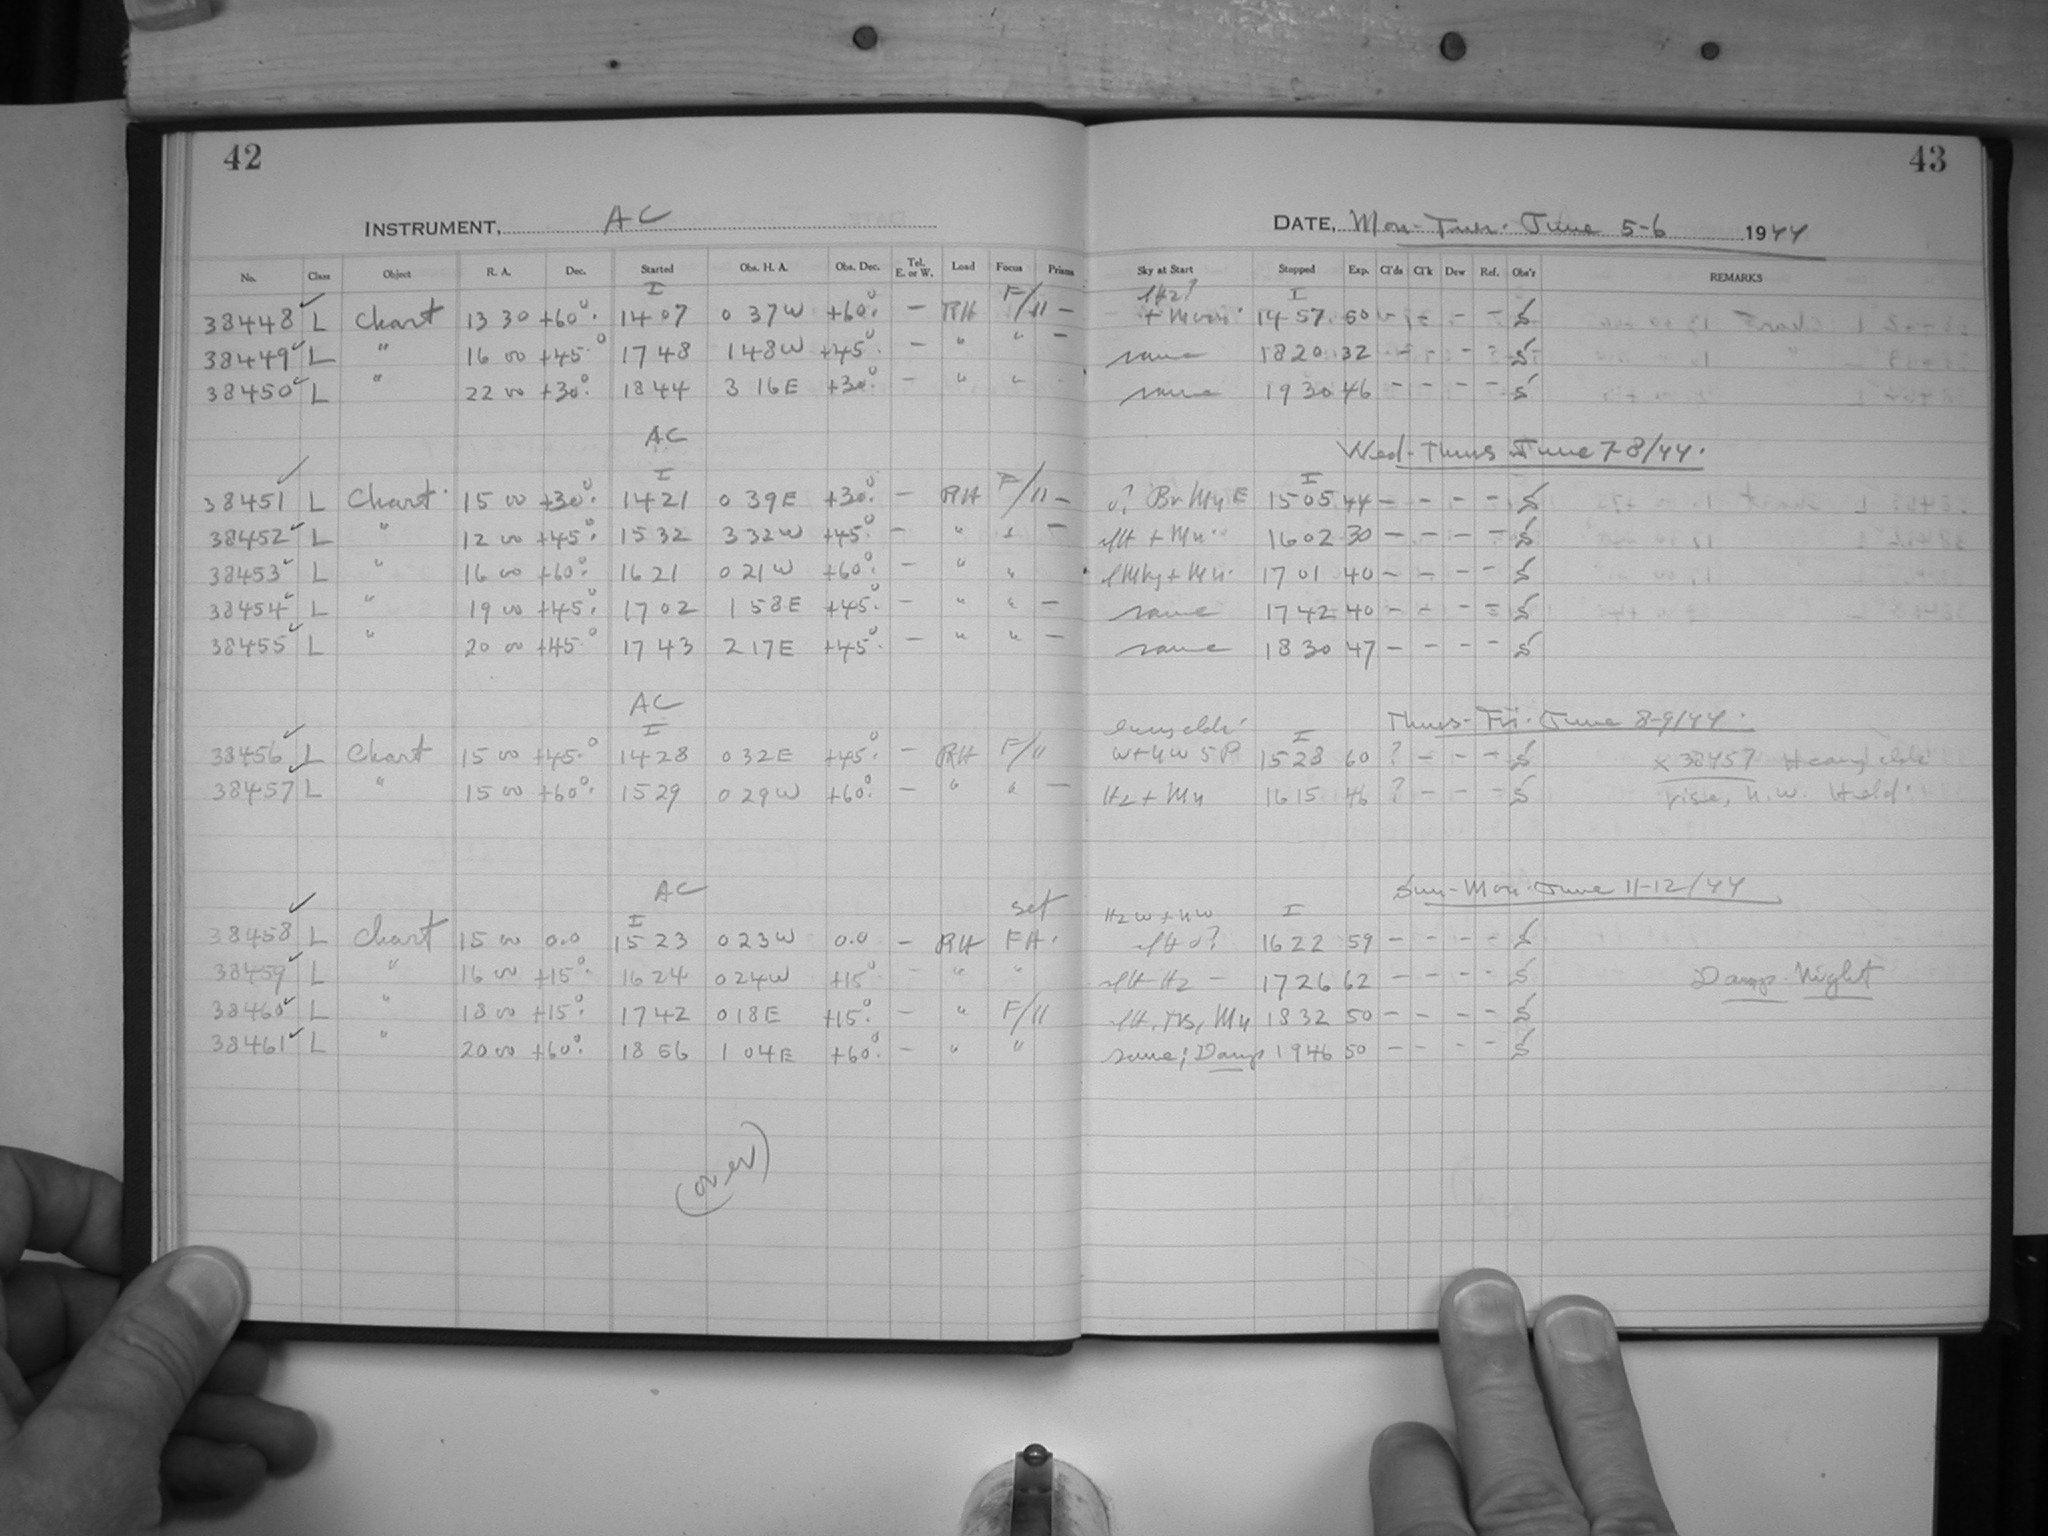 42
43
INSTRUMENT, AC
DATE, Mon-Tues. June 5-6 1944
No. Class Object R. A. Dec. Started Obs. H. A. Obs. Dec. Tel. E. or W. Load Focus Prisms Sky at Start Stopped Exp. Cl'ds Cl'k Dew Ref. Obs'r REMARKS
I I
38448 ✓ L Chart 13 30 +60° 14 07 0 37W +60° - RH F/11 - + Moon 14 57 50 - - - - S
38449 ✓ L " 16 00 +45° 17 48 1 48W +45° - " " - same 18 20 32 - - - - S
38450 ✓ L " 22 00 +30° 18 44 3 16E +30° - " " same 19 30 46 - - - - S
AC Wed-Thurs June 7-8/44.
I I
38451 ✓ L Chart 15 00 +30° 14 21 0 39E +30° - RH F/11 - 0? Br Mn E 15 05 44 - - - - S
38452 ✓ L " 12 00 +45° 15 32 3 32W +45° - " " - + Mn 16 02 30 - - - - S
38453 ✓ L " 16 00 +60° 16 21 0 21W +60° - " " + Mn. 17 01 40 - - - - S
38454 ✓ L " 19 00 +45° 17 02 1 58E +45° - " " - same 17 42 40 - - - - S
38455 ✓ L " 20 00 +45° 17 43 2 17E +45° - " " - same 18 30 47 - - - - S
AC Thurs-Fri. June 8-9/44.
I I
38456 ✓ L Chart 15 00 +45° 14 28 0 32E +45° - RH F/11 W+NW 15 28 60 ? - - - S x 38457 Heavy clds
38457 ✓ L " 15 00 +60° 15 29 0 29W +60° - " " - Hz + Mn 16 15 46 ? - - - S rise, N.W. Held.
AC Sun-Mon. June 11-12/44
I set Hz W + NW I
38458 ✓ L Chart 15 00 0.0 15 23 0 23W 0.0 - RH FH. 0? 16 22 59 - - - - S
38459 ✓ L " 16 00 +15° 16 24 0 24W +15° - " " Hz - 17 26 62 - - - - S Damp Night
38460 ✓ L " 18 00 +15° 17 42 0 18E +15° - " F/11 Mn 18 32 50 - - - - S
38461 ✓ L " 20 00 +60° 18 56 1 04E +60° - " " same; Damp 19 46 50 - - - - S
(over)